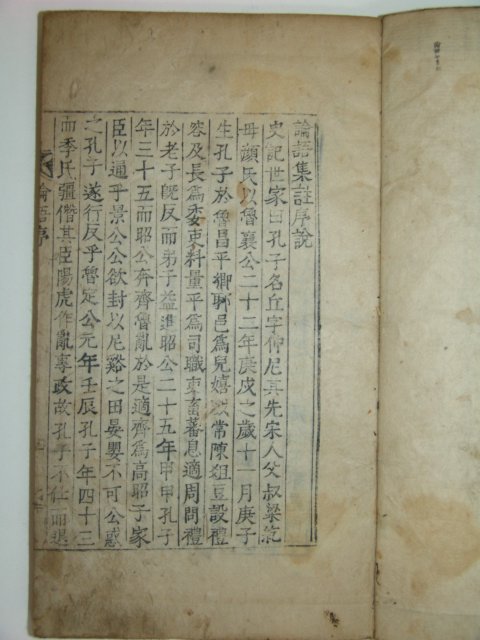 論語集註序說
史記世家曰孔子名丘字仲尼其先宋人父叔梁紇
母顏氏以魯襄公二十二年庚戌之歲十一月庚子
生孔子於魯昌平鄕鄹邑爲兒嬉戲常陳俎豆設禮
容及長爲委吏料量平爲司職吏畜蕃息適周問禮
於老子旣反而弟子益進昭公二十五年甲申孔子
年三十五而昭公奔齊魯亂於是適齊爲高昭子家
臣以通乎景公公欲封以尼谿之田晏嬰不可公惑
之孔子遂行反乎魯定公元年壬辰孔子年四十三
而季氏彊僭其臣陽虎作亂專政故孔子不仕而退
論語序